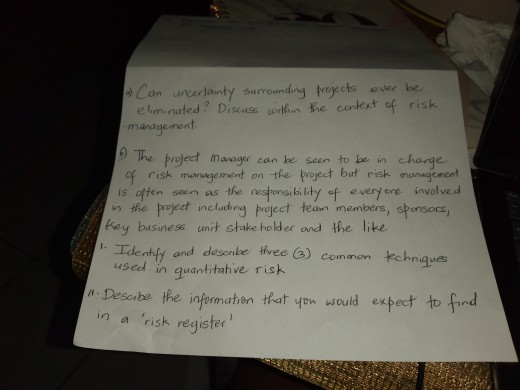 a) Can uncertainty surrounding projects ever be
eliminated? Discuss within the context of risk
management.
b) The project Manager can be seen to be in charge
of risk management on the project but risk management
is often seen as the responsibility of everyone involved
in the project including project team members, sponsors,
key business unit stakeholder and the like
I. Identify and describe three (3) common techniques
used in quantitative risk
II. Describe the information that you would expect to find
in a 'risk register'